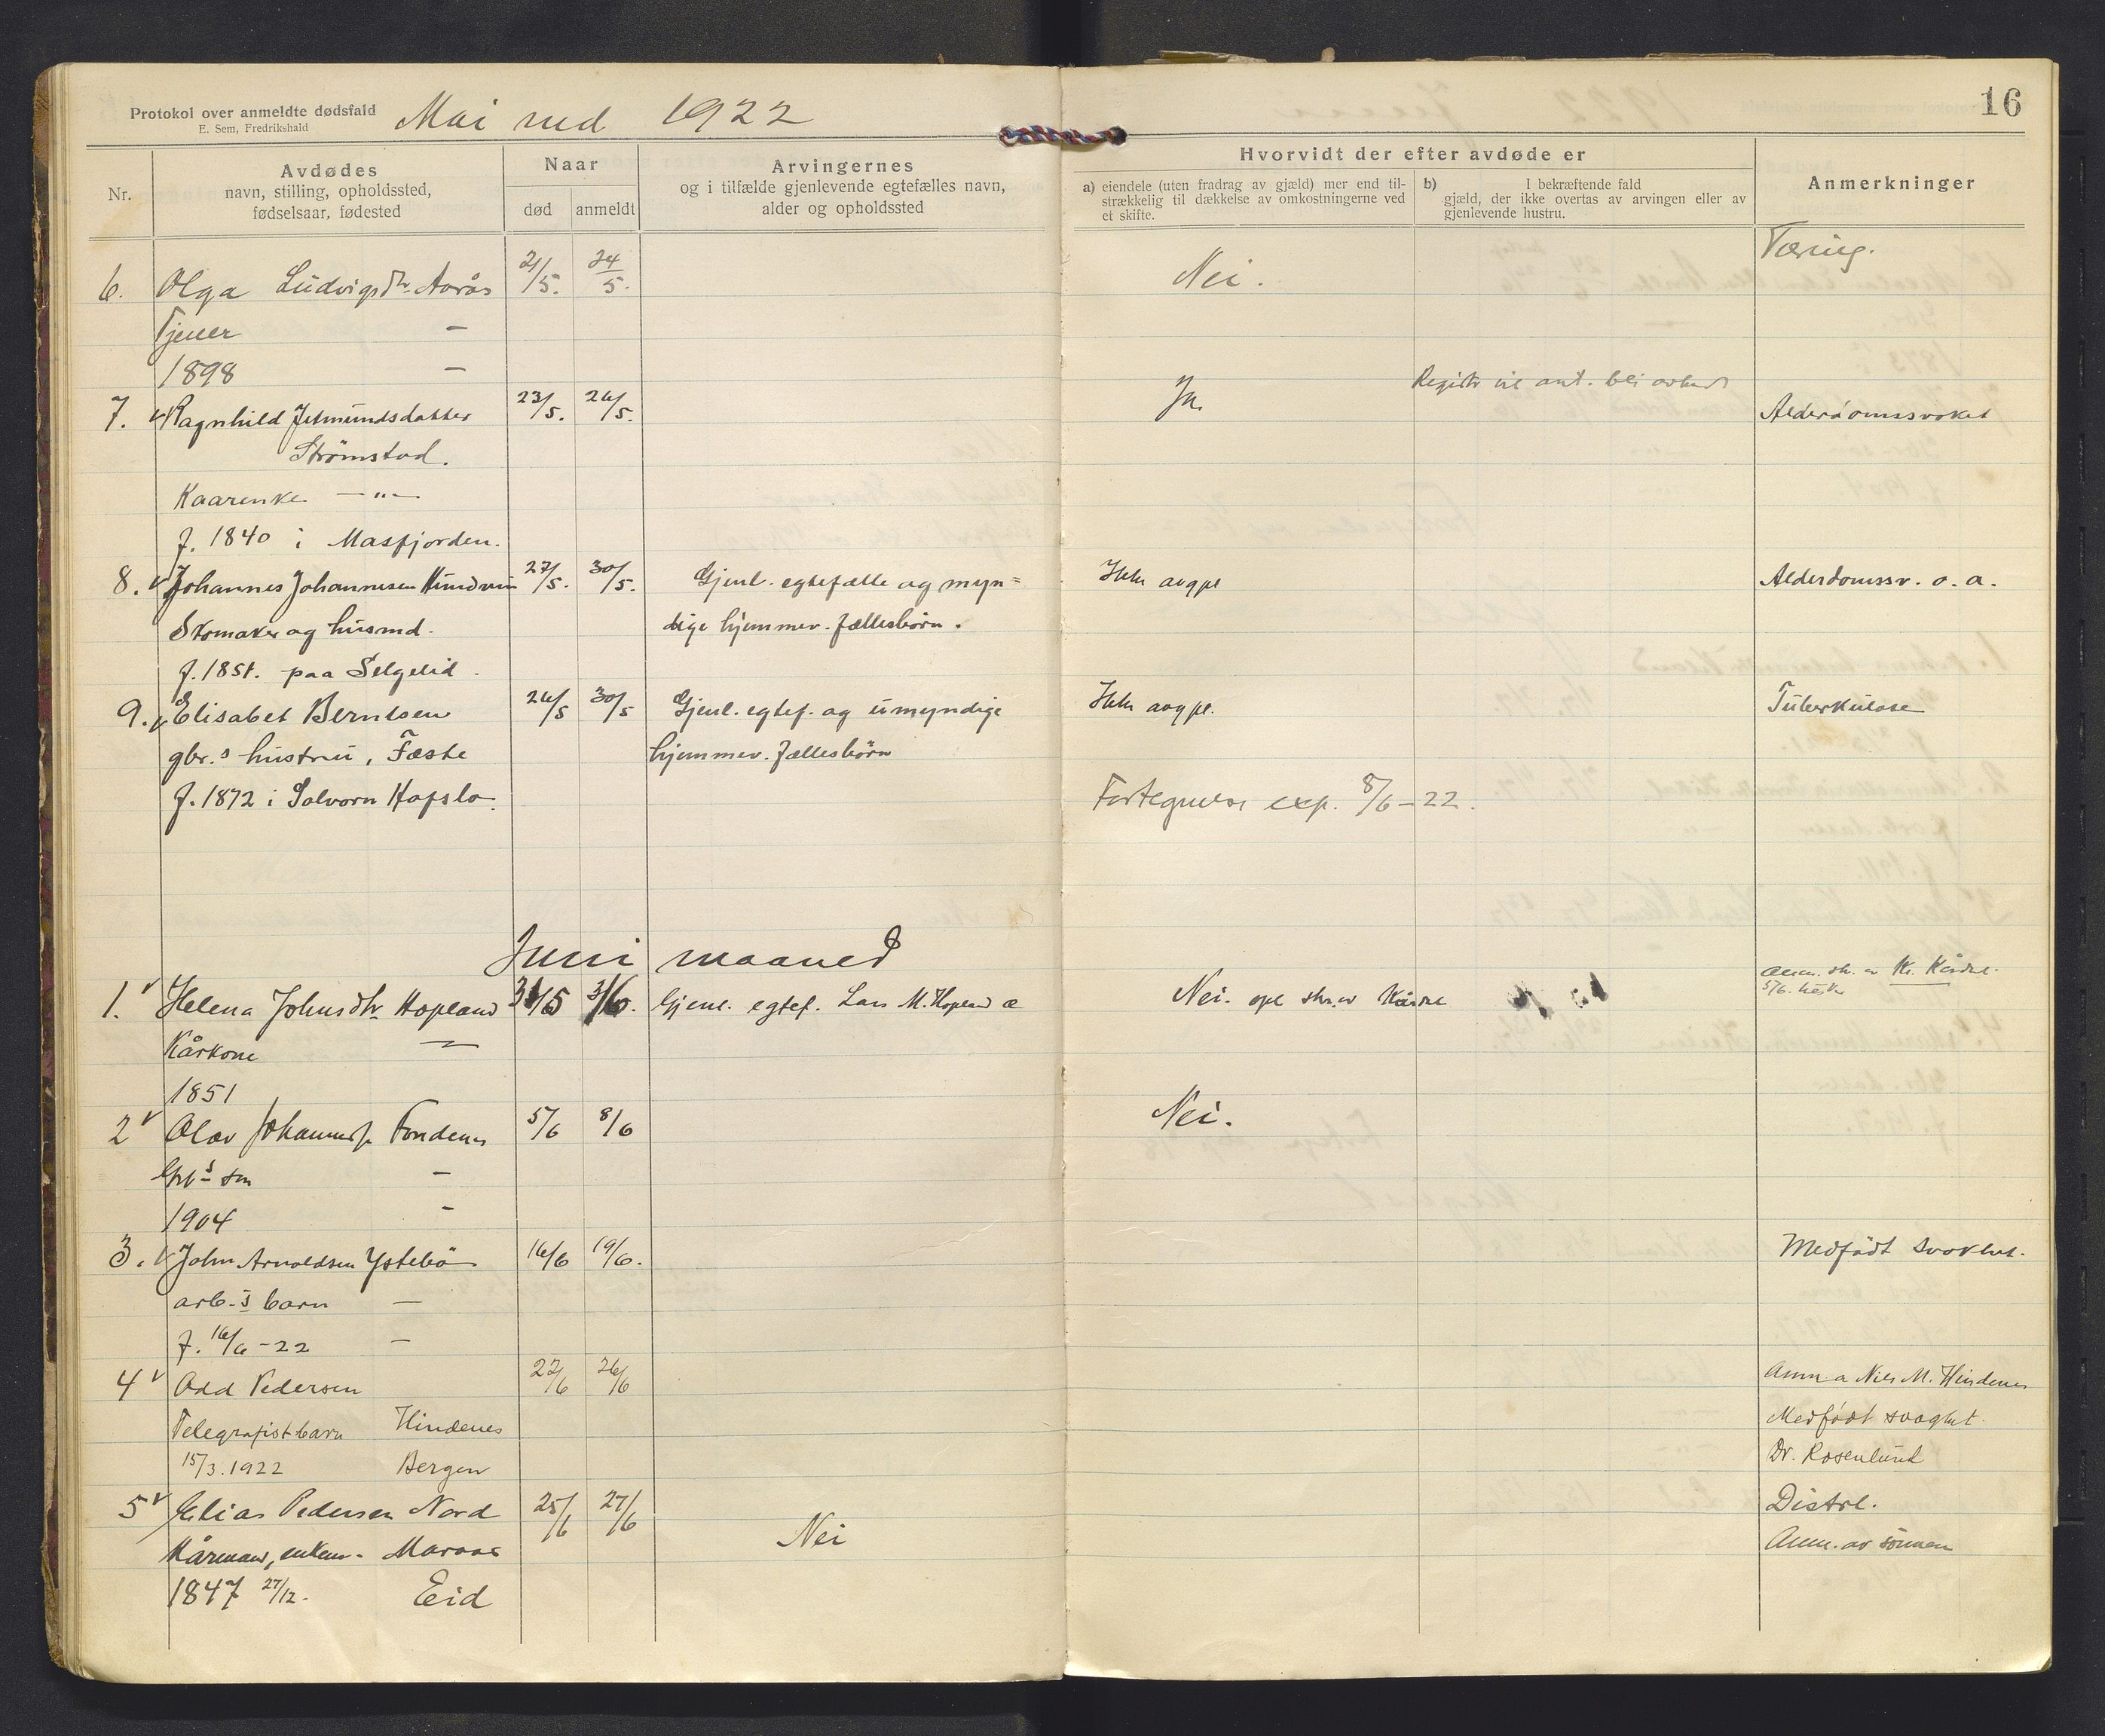 Protokol over anmeldte dødsfald
E. Sem, Fredrikshald
Mai md 1922
16
Nr.
Avdødes
navn, stilling, opholdssted,
fødselsaar, fødested
Naar
død
anmeldt
Arvingernes
og i tilfælde gjenlevende egtefælles navn,
alder og opholdssted
Hvorvidt der efter avdøde er
a) eiendele (uten fradrag av gjæld) mer end til-
strækkelig til dækkelse av omkostningerne ved
et skifte.
b) I bekræftende fald
gjæld, der ikke overtas av arvingen eller av
gjenlevende hustru.
Anmerkninger
6. Olga Ludvigsdtr. Aarås 21/5. 24/5. Nei. Tæring.
Tjener —
1898 —
7. Ragnhild Jetmundsdatter 23/5. 26/5. Ja. Registr vil ant. bli Alderdomssvakhet
Strömstad.
Kaarenke —"—
f. 1840 i Masfjorden.
8. Johannes Johannesen 27/5. 30/5. Gjenl. egtefælle og myn= Ikke Alderdomssv. o. a.
Skomaker og husmd. dige hjemmev. fællesbörn.
f. 1851. paa Selgelid.
9. Elisabet Berntsen 26/5 30/5 Gjenl. egtef. og umyndige Ikke Tuberkulose
gbr.s hustru, Fæste hjemmev. fællesbörn
f. 1872 i Solvorn Hafslo.
Fortegnelse exp. 8/6-22.
Juni maaned
1. Helena Johnsdtr Hopland 31/5 3/6. Gjenl. egtef. Lars M. Hopland Nei.
Kårkone —
1851
2 Olav Johannes Fondenes 5/6 8/6 Nei.
Gbrs søn —
1904 -
3. John Arnoldsen Ystebö 16/6 19/6. Medfödt svakhet.
arb-s barn —
f. 16/6-22 —
4 Odd Pedersen 22/6 26/6 Anm a Nils M. Hindenes
Telegrafist barn Hindenes Medfödt svaghet.
15/3.1922 Bergen Dr. Rosenlund
5 Elias Pedersen Nord 25/6 27/6 Nei Distrl.
Kårmand, enkem. Maraas Anm. av sönnen
1847 27/12. Eid